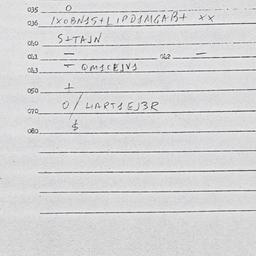 035 0
036 1X0BN1S+L1PD1MGAB+ XX
040 S+TAJN
041 — 042 —
043 — QM1CEJV1
050 +
070 0/L1ART1EJ3R
080 $